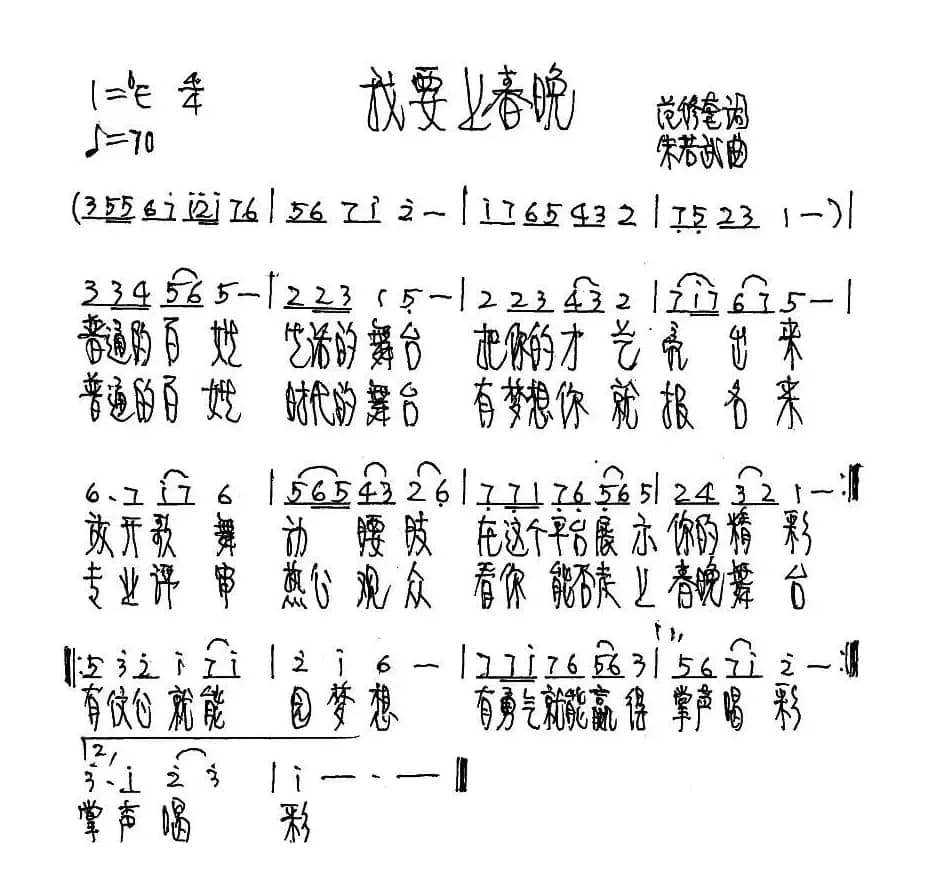 1=♭E 4/4 我要上春晚 范修奎词
♩=70 朱若武曲
(3 5 5 6 7 i i 2 i 7 6 | 5 6 7 i 2 — | i 7 6 5 4 3 2 | 7 5 2 3 1 —) |
3 3 4 5 6 5 — | 2 2 3 1 5 — | 2 2 3 4 3 2 | 7 i 7 6 7 5 — |
普通的百姓 生活的舞台 把你的才艺亮出来
普通的百姓 时代的舞台 有梦想你就报名来
6. 7 i 7 6 | 5 6 5 4 3 2 6 | 7 7 1 7 6 5 6 5 | 2 4 3 2 1 — :‖
放开歌舞动腰肢 在这个平台展示你的精彩
专业评审热心观众 看你能否走上春晚舞台
‖: 5 3 2 i 7 i | 2 i 6 — | 7 7 i 7 6 5 6 3 | 1, 5 6 7 i 2 — :‖
有信心就能圆梦想 有勇气就能赢得掌声喝彩
2, 3. i 2 3 | i — . — ‖
掌声喝彩